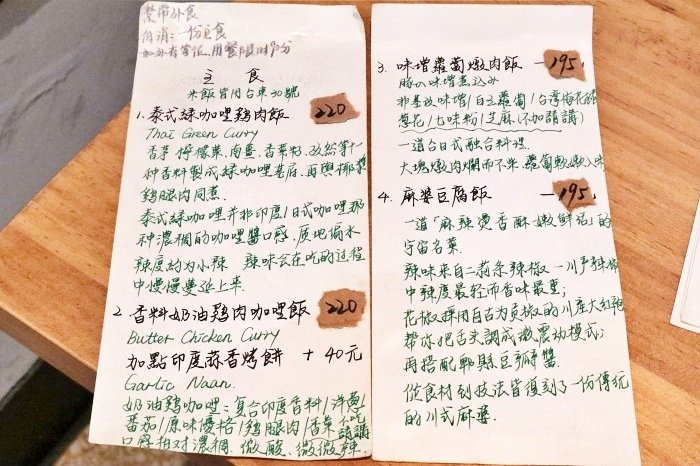 禁帶外食
低消:一份主食
如外有等位,用餐限時90分
主食
米飯皆用台東30號
1. 泰式綠咖哩雞肉飯 220
Thai Green Curry
香茅、檸檬葉、南薑、香菜籽、孜然等十一
種香料製成綠咖哩基底,再與椰漿
雞腿肉同煮.
泰式綠咖哩並非印度/日式咖哩那
種濃稠的咖哩醬口感,質地偏水
辣度約為小辣 辣味會在吃的过程
中慢慢蔓延上來.
2. 香料奶油雞肉咖哩飯 220
Butter Chicken Curry
加點印度蒜香烤餅 + 40元
Garlic Naan.
奶油雞咖哩:复合印度香料/洋蔥/
番茄/原味優格/雞腿肉/香菜 不吃請講
口感相对濃稠、微酸、微微辣.
3. 味增蘿蔔燉肉飯 — 195.
豚の味増煮込み
非基改味增/白玉蘿蔔/台灣梅花豬
蔥花/七味粉/芝麻(不加請講)
一道台日式融合料理
大塊燉肉爛而不柴,蘿蔔軟嫩入味
4. 麻婆豆腐飯 — 195.
一道「麻辣燙香酥嫩鮮活」的
宇宙名菜
辣味來自二荊条辣椒 - 川产辣椒
中辣度最轻而香味最重;
花椒採用自古为贡椒的川產大紅袍
帶你把舌头調成微震动模式;
再搭配郫縣豆瓣醬.
從食材到技法皆復刻了一份傳統
的川式麻婆.